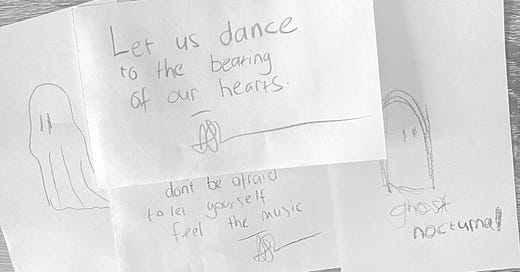 Let us dance
to the beating
of our hearts.
dont be afraid
to let yourself
feel the music
ghost
nocturnal